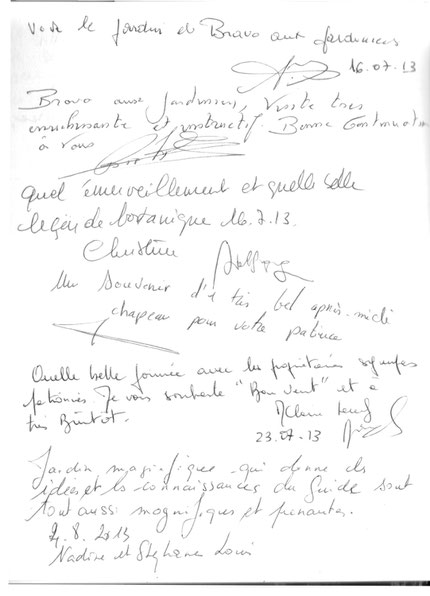 le jardin et Bravo aux jardiniers
16.07.13
Bravo aux Jardiniers, Visite très
enrichissante et instructif. Bonne Continuation
à vous
Quel émerveillement et quelle belle
leçon de botanique 16.7.13.
Christine
Un Souvenir d'1 très bel après-midi
chapeau pour votre patience
Quelle belle journée avec les propriétaires
passionnés. Je vous souhaite "Bon vent" et à
très Bientôt.
23.07.13
Jardin magnifique qui donne des
idées et les connaissances du Guide sont
tout aussi magnifiques et
8.2013
Nadine et Stéphane Louis